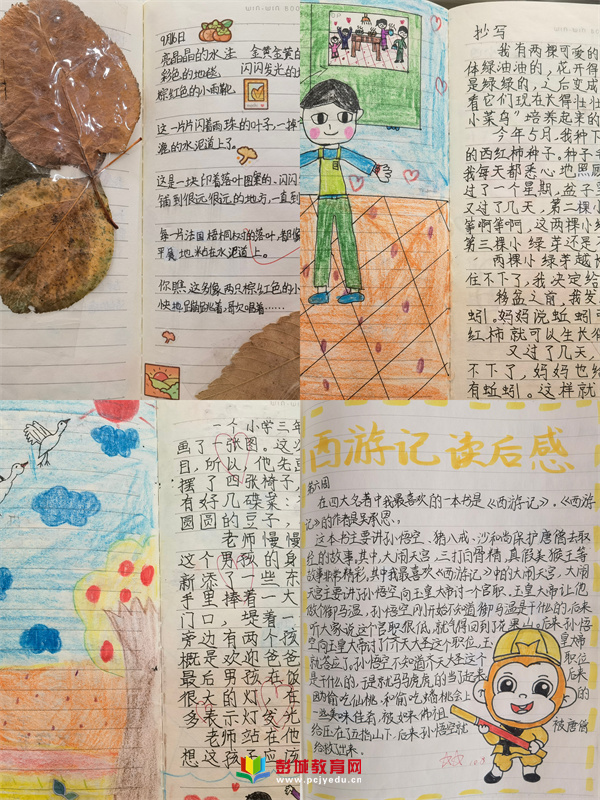 win.win
9月16日
亮晶晶的水洼 金黄金黄的
彩色的地毯 闪闪发光的
棕红色的小雨靴
这一片片闪着雨珠的叶子,一掉
漉的水泥道上了。
这是一块印着落叶图案的、闪闪
铺到很远很远的地方,一直到
每一片法国梧桐树的落叶,都像
平展地粘在水泥道上。
你瞧这多像两只棕红色的小
快地蹦跳着,歌唱着……
抄写
我有两棵可爱的
体绿油油的,花开得
是绿绿的,之后变成
看它们现在长得壮壮
小菜鸟"培养起来的
今年5月,我种下
的西红柿种子。种子
我每天都悉心地照顾
过了一个星期,盆子里
又过了几天,第二棵小
等啊等啊,这两棵小绿
第三棵小绿芽还是
两棵小绿芽越
住不了,我决定给
移盆之前,我发
蚓。妈妈说蚯蚓可
红柿就可以生长得
又过了几天,
不下了,妈妈也给
有蚯蚓。这样就
一个小学三年
画了一张图。这次
目,所以他先画
摆了四张椅子,
有好几碟菜:
圆圆的豆子,
老师慢慢
这个男孩的身
新添了一些东
手里捧着一大
门口,堤着一
旁边有两个孩
概是欢迎爸爸
最后男孩在饭
很大的灯,在
多表示灯发光
老师站在他
想这孩子应该
西游记读后感
第六回
在四大名著中我最喜欢的一本书是《西游记》,《西游
记》的作者是吴承恩。
这本书主要讲孙悟空、猪八戒、沙和尚保护唐僧去取
经的故事,其中,大闹天宫,三打白骨精,真假美猴王等
故事非常精彩,其中我最喜欢《西游记》中的大闹天宫,大闹
天宫主要讲了孙悟空向玉皇大帝讨一个官职,玉皇大帝让他
做个御马温,孙悟空刚开始不知道御马温是干什么的,后来
听大家说这个官职很低,就气得回到了花果山。后来孙悟
空向玉皇大帝讨了齐天大圣这个职位,玉皇大帝
就答应了。孙悟空不知道齐天大圣这个职位
是干什么的,于是就马马虎虎的当了起来,后来
因偷吃仙桃,和偷吃蟠桃会上的
一些美味佳肴,被如来佛祖
给压在了五指山下,后来孙悟空就被唐僧
给救了出来。
彭城教育网
www.pcjyedu.cn